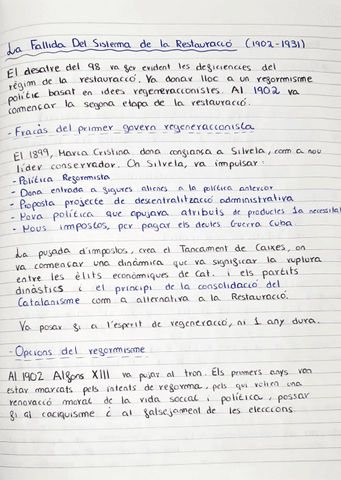 La Fallida Del Sistema de la Restauració (1902-1931)
El desatre del 98 va fer evident les deficiències del
règim de la restauració. Va donar lloc a un reformisme
polític basat en idees regeneracionistes. Al 1902 va
comencar la segona etapa de la restauració.
- Fracàs del primer govern regeneracionista
El 1899, Maria Cristina dona confiança a Silvela, com a nou
líder conservador. On Silvela, va impulsar:
- Política Reformista
- Dona entrada a figures alienes a la política anterior
- Proposta projecte de descentralització administrativa
- Nova política que apujava atributs de productes 1a necessitat
- Nous impostos, per pagar els deutes Guerra Cuba.
La pujada d'impostos, crea el Tancament de Caixes, on
va començar una dinàmica que va significar la ruptura
entre les èlits econòmiques de Cat. i els partits
dinàstics i el principi de la consolidació del
Catalanisme com a alternativa a la Restauració.
Va posar fi a l'esperit de regeneració, ni 1 any dura.
- Opcions del reformisme
Al 1902 Alfons XIII va pujar al tron. Els primers anys van
estar marcats pels intents de reforma, pels qui volien una
renovació moral de la vida social i política, possar
fi al caciquisme i al falsejament de les eleccions